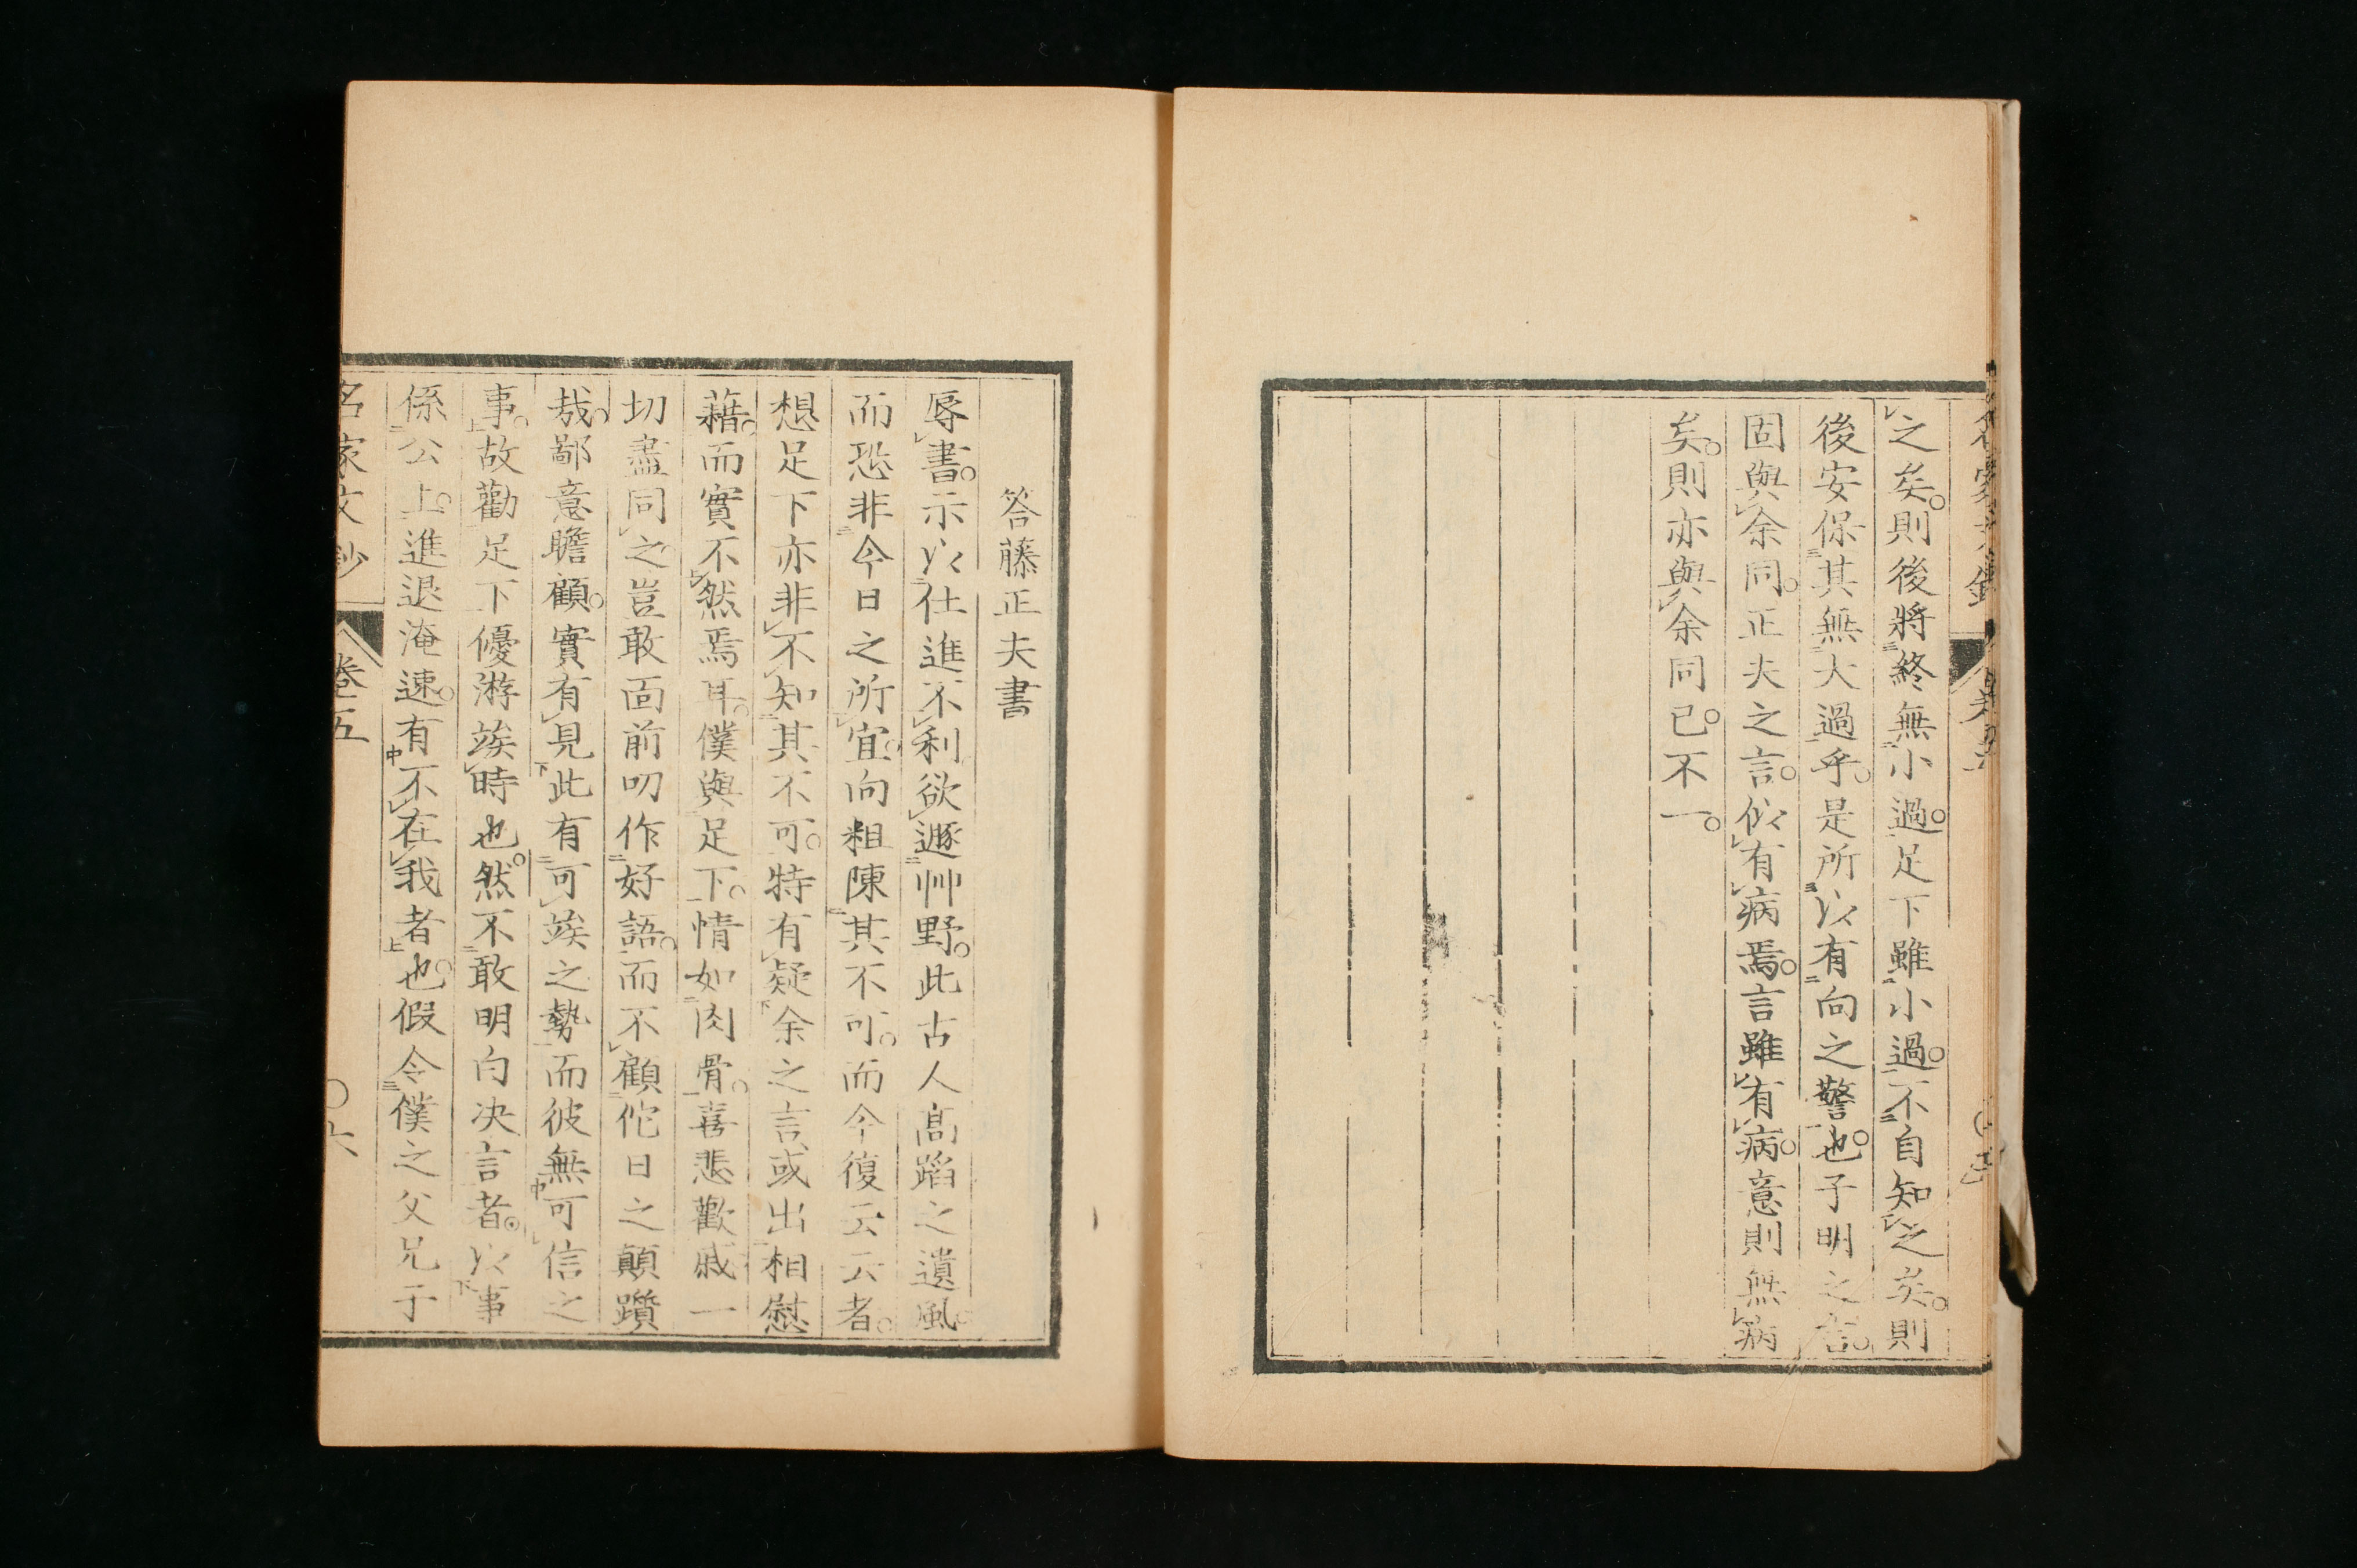 之矣。則後將終無小過。足下雖小過。不自知之矣。則
後安保其無大過乎。是所以有向之警也。子明之言。
固與余同。正夫之言。似有病焉。言雖有病。意則無病
矣。則亦與余同已。不一。
答藤正夫書
辱書。示以仕進不利欲遯艸野。此古人高蹈之遺風。
而恐非今日之所宜。向粗陳其不可。而今復云云者。
想足下亦非不知其不可。特有疑余之言、或出相慰
藉。而實不然焉耳。僕與足下。情如肉骨。喜悲歡戚一
切盡同之豈敢面前叨作好語。而不顧佗日之顛躓
哉。鄙意瞻顧。實有見此有可竢之勢而彼無可信之
事。故勸足下優游竢時也。然不敢明白決言者。以事
係公上。進退淹速。有不在我者也。假令僕之父兄子
名家文鈔
卷五
〇六